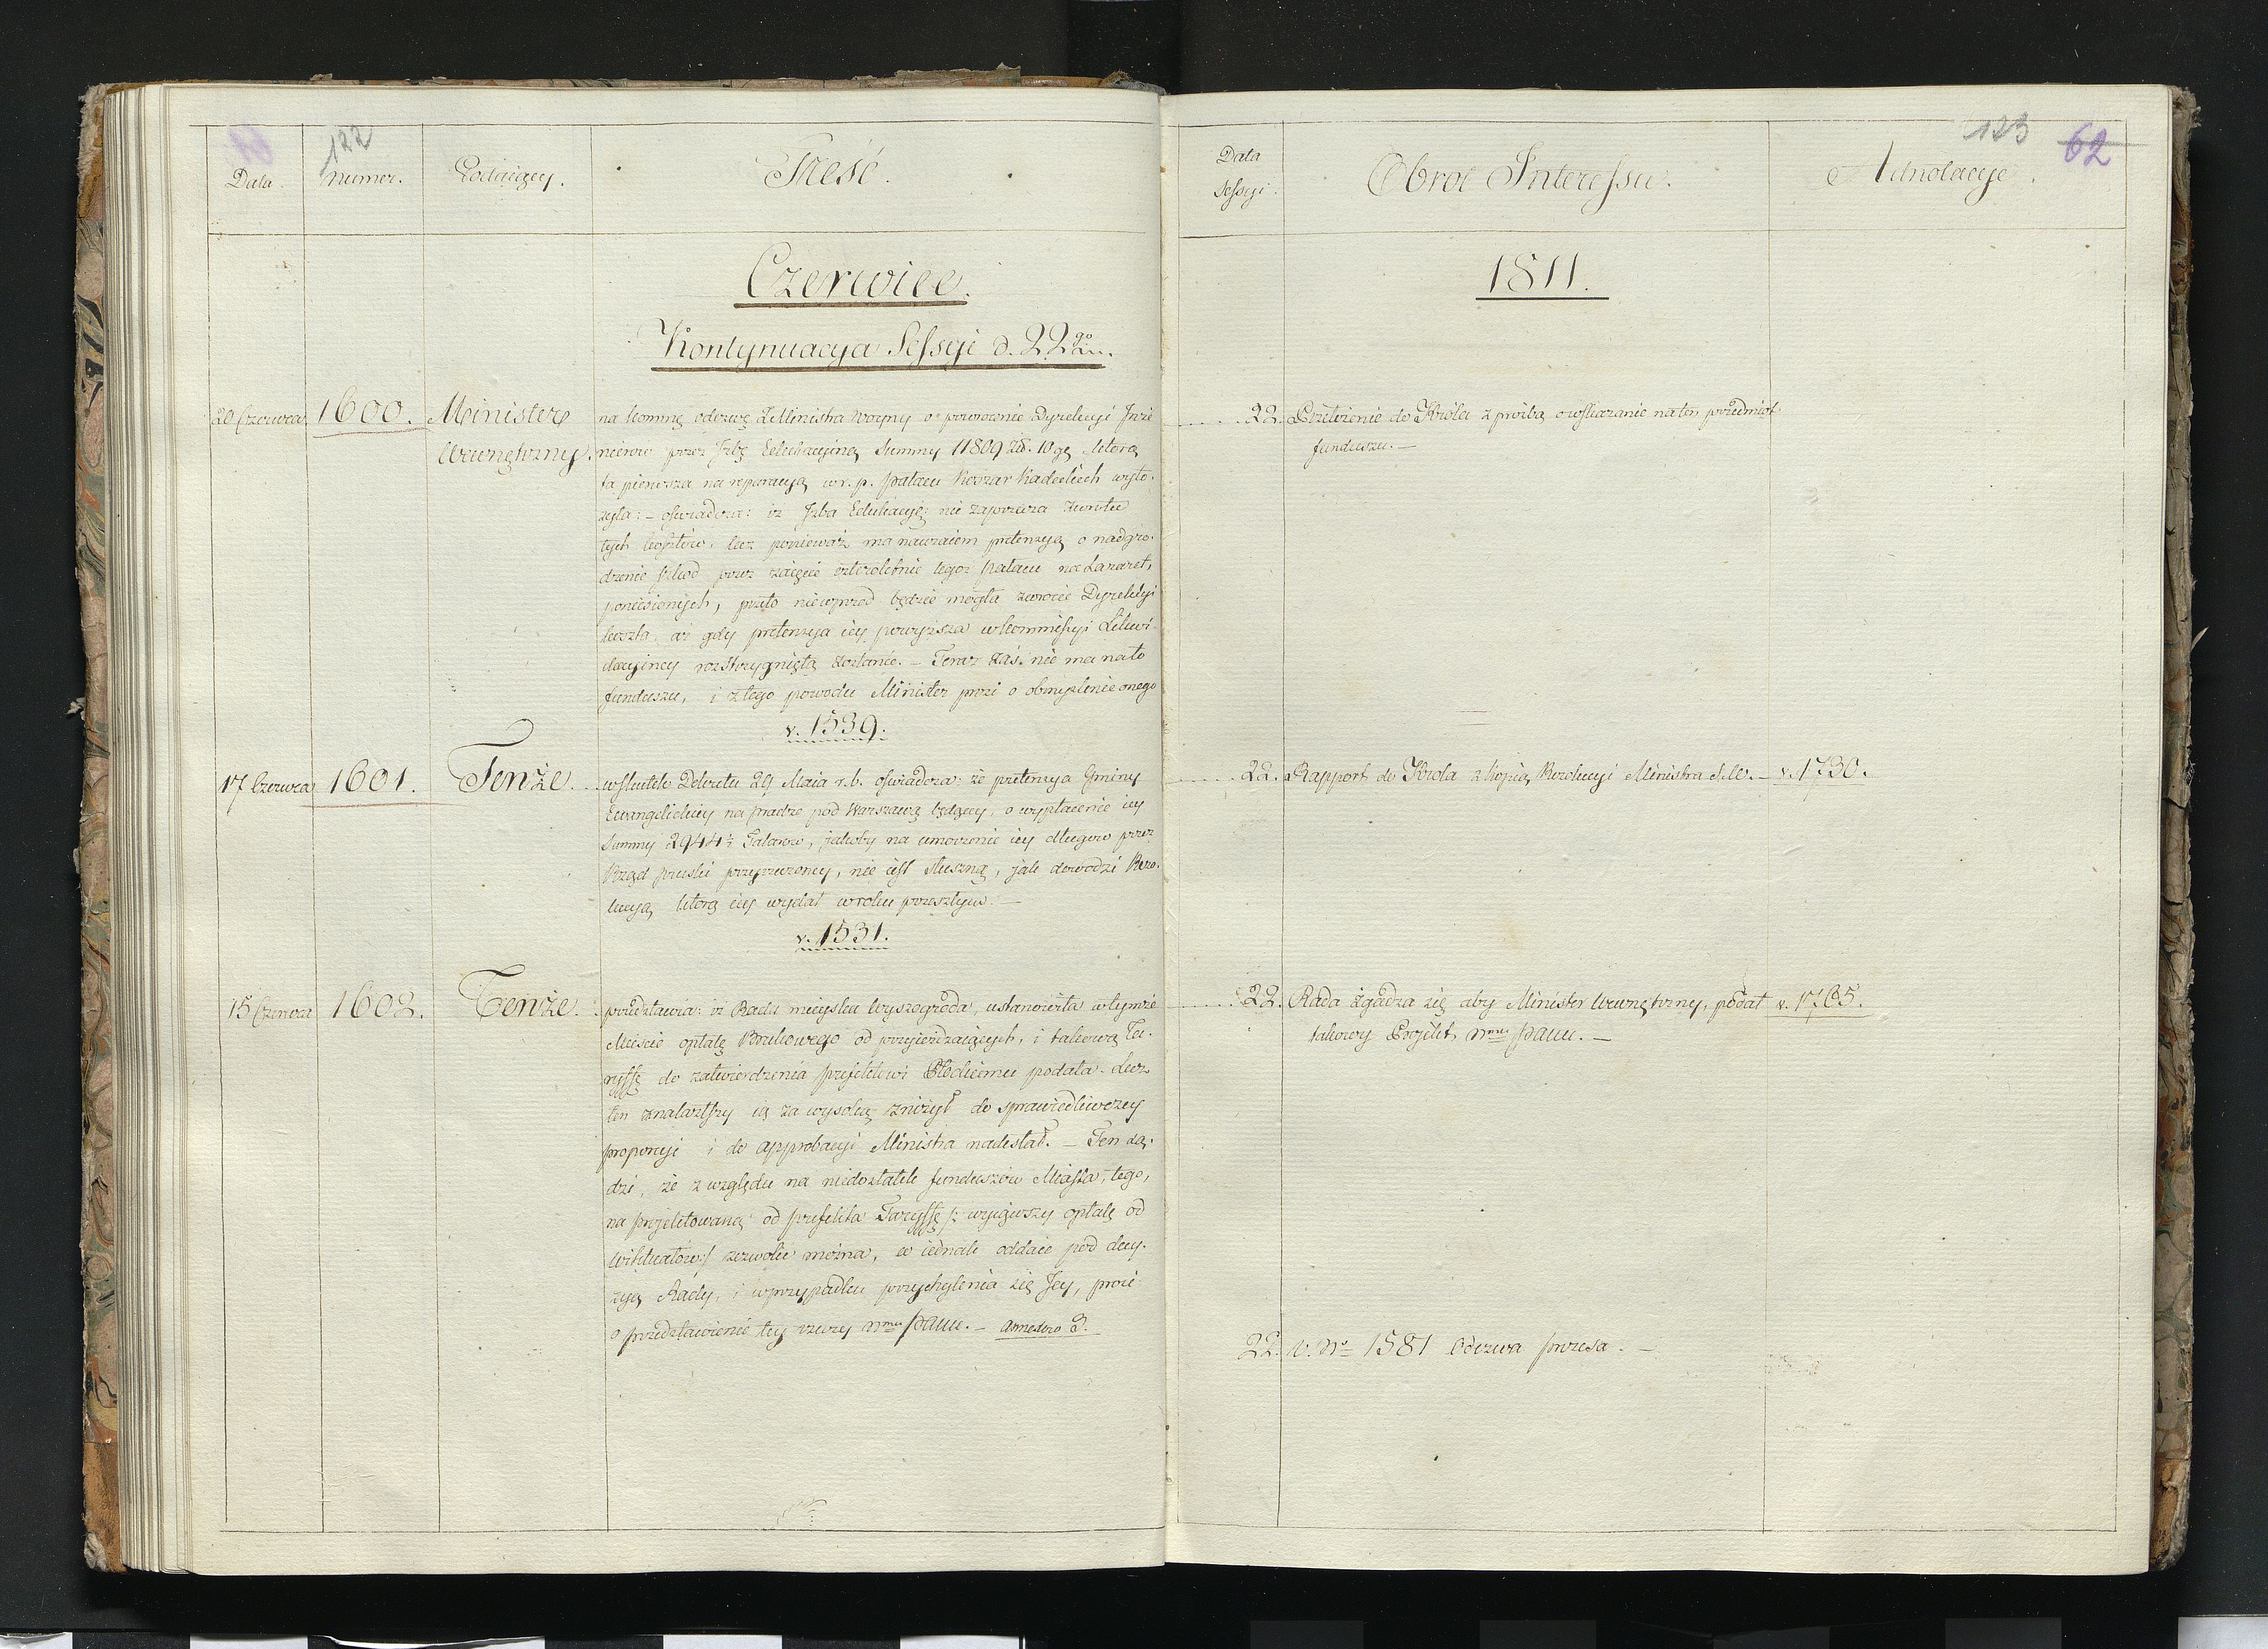 122
Data.
numer.
Podaiący.
Treść.
Czerwiec.
Kontynuacya Sessyi d. 22go
20 Czerwca 1600. Minister
Wewnętrzny.
na kommę odezwę Ministra Woyny o powrocenie Dyrekcyi Inże
nierow przez Izbę Edukacyiną Summy 11809 Zł. 10 gę którą
ta pierwsza na reparacyą w r. p. pałacu Koszar Kadeckich wyło-
żyła: – oświadcza: iż Izba Edukacyi: nie zaprzecza zwrotu
tych kosztów, lecz ponieważ ma nawzaiem pretensyą o nadgro-
dzenie szkod przez zaięcie czteroletnie tegoż pałacu na Lazaret,
poniesionych, przeto niewprzod będzie mogła zwrócić Dyrekcyi
koszta, aż gdy pretensya iey powyższa w kommissyi Likwi-
dacyiney rozstrzygniętą zostanie. – Teraz zaś nie ma na to
funduszu, i z tego powodu Minister prosi o obmyślenie onego
v. 1539.
17 Czerwca 1601. Tenże.
w skutek Dekretu 29 Maia r. b. oświadcza: że pretensya Gminy
Ewangelickiey na Pradze pod Warszawą będącey, o wypłacenie iey
Summy 2944 Talarow, jakoby na umorzenie iey długow przez
Rząd pruski przyrzeczoney, nie iest słuszną, jak dowodzi Rezo-
lucyą którą iey wydał w roku przeszłym. –
v. 1531.
15 Czerwca 1602. Tenże.
przedstawia: iż Rada mieyska Wyszogroda, ustanowiła w tymże
Mieście opłatę Brukowego od przyieżdzaiących, i takową Ta-
ryffę do zatwierdzenia prefektowi Płockiemu podała. Lecz
ten znalazłszy ią za wysoką zniżył do sprawiedliwszey
proporcyi i do approbacyi Ministra nadesłał. – Ten są-
dzi, że z względu na niedostatek funduszów Miasta, tego,
na projektowaną od prefekta Taryffę /: wyiąwszy opłatę od
Wiktuałów:/ zezwolić można, co iednak oddaie pod decy-
zyą Rady, i w przypadku przychylenia się Jey, prosi
o przedstawienie tey rzeczy Nmu Panu. – annexów 3.
123
62
Data
Sessyi.
Obrot Interessu.
Adnotacye.
1811.
22. Przełożenie do Króla z proźbą o wskazanie na ten przedmiot
funduszu. –
22. Rapport do Krola z kopią Rezolucyi Ministra S. W. – v. 1730.
22. Rada zgadza się aby Minister Wewnętrzny, podał v. 1765.
takowy Projekt Nmu Panu. –
22. v. No 1581 Odezwa prezesa. –